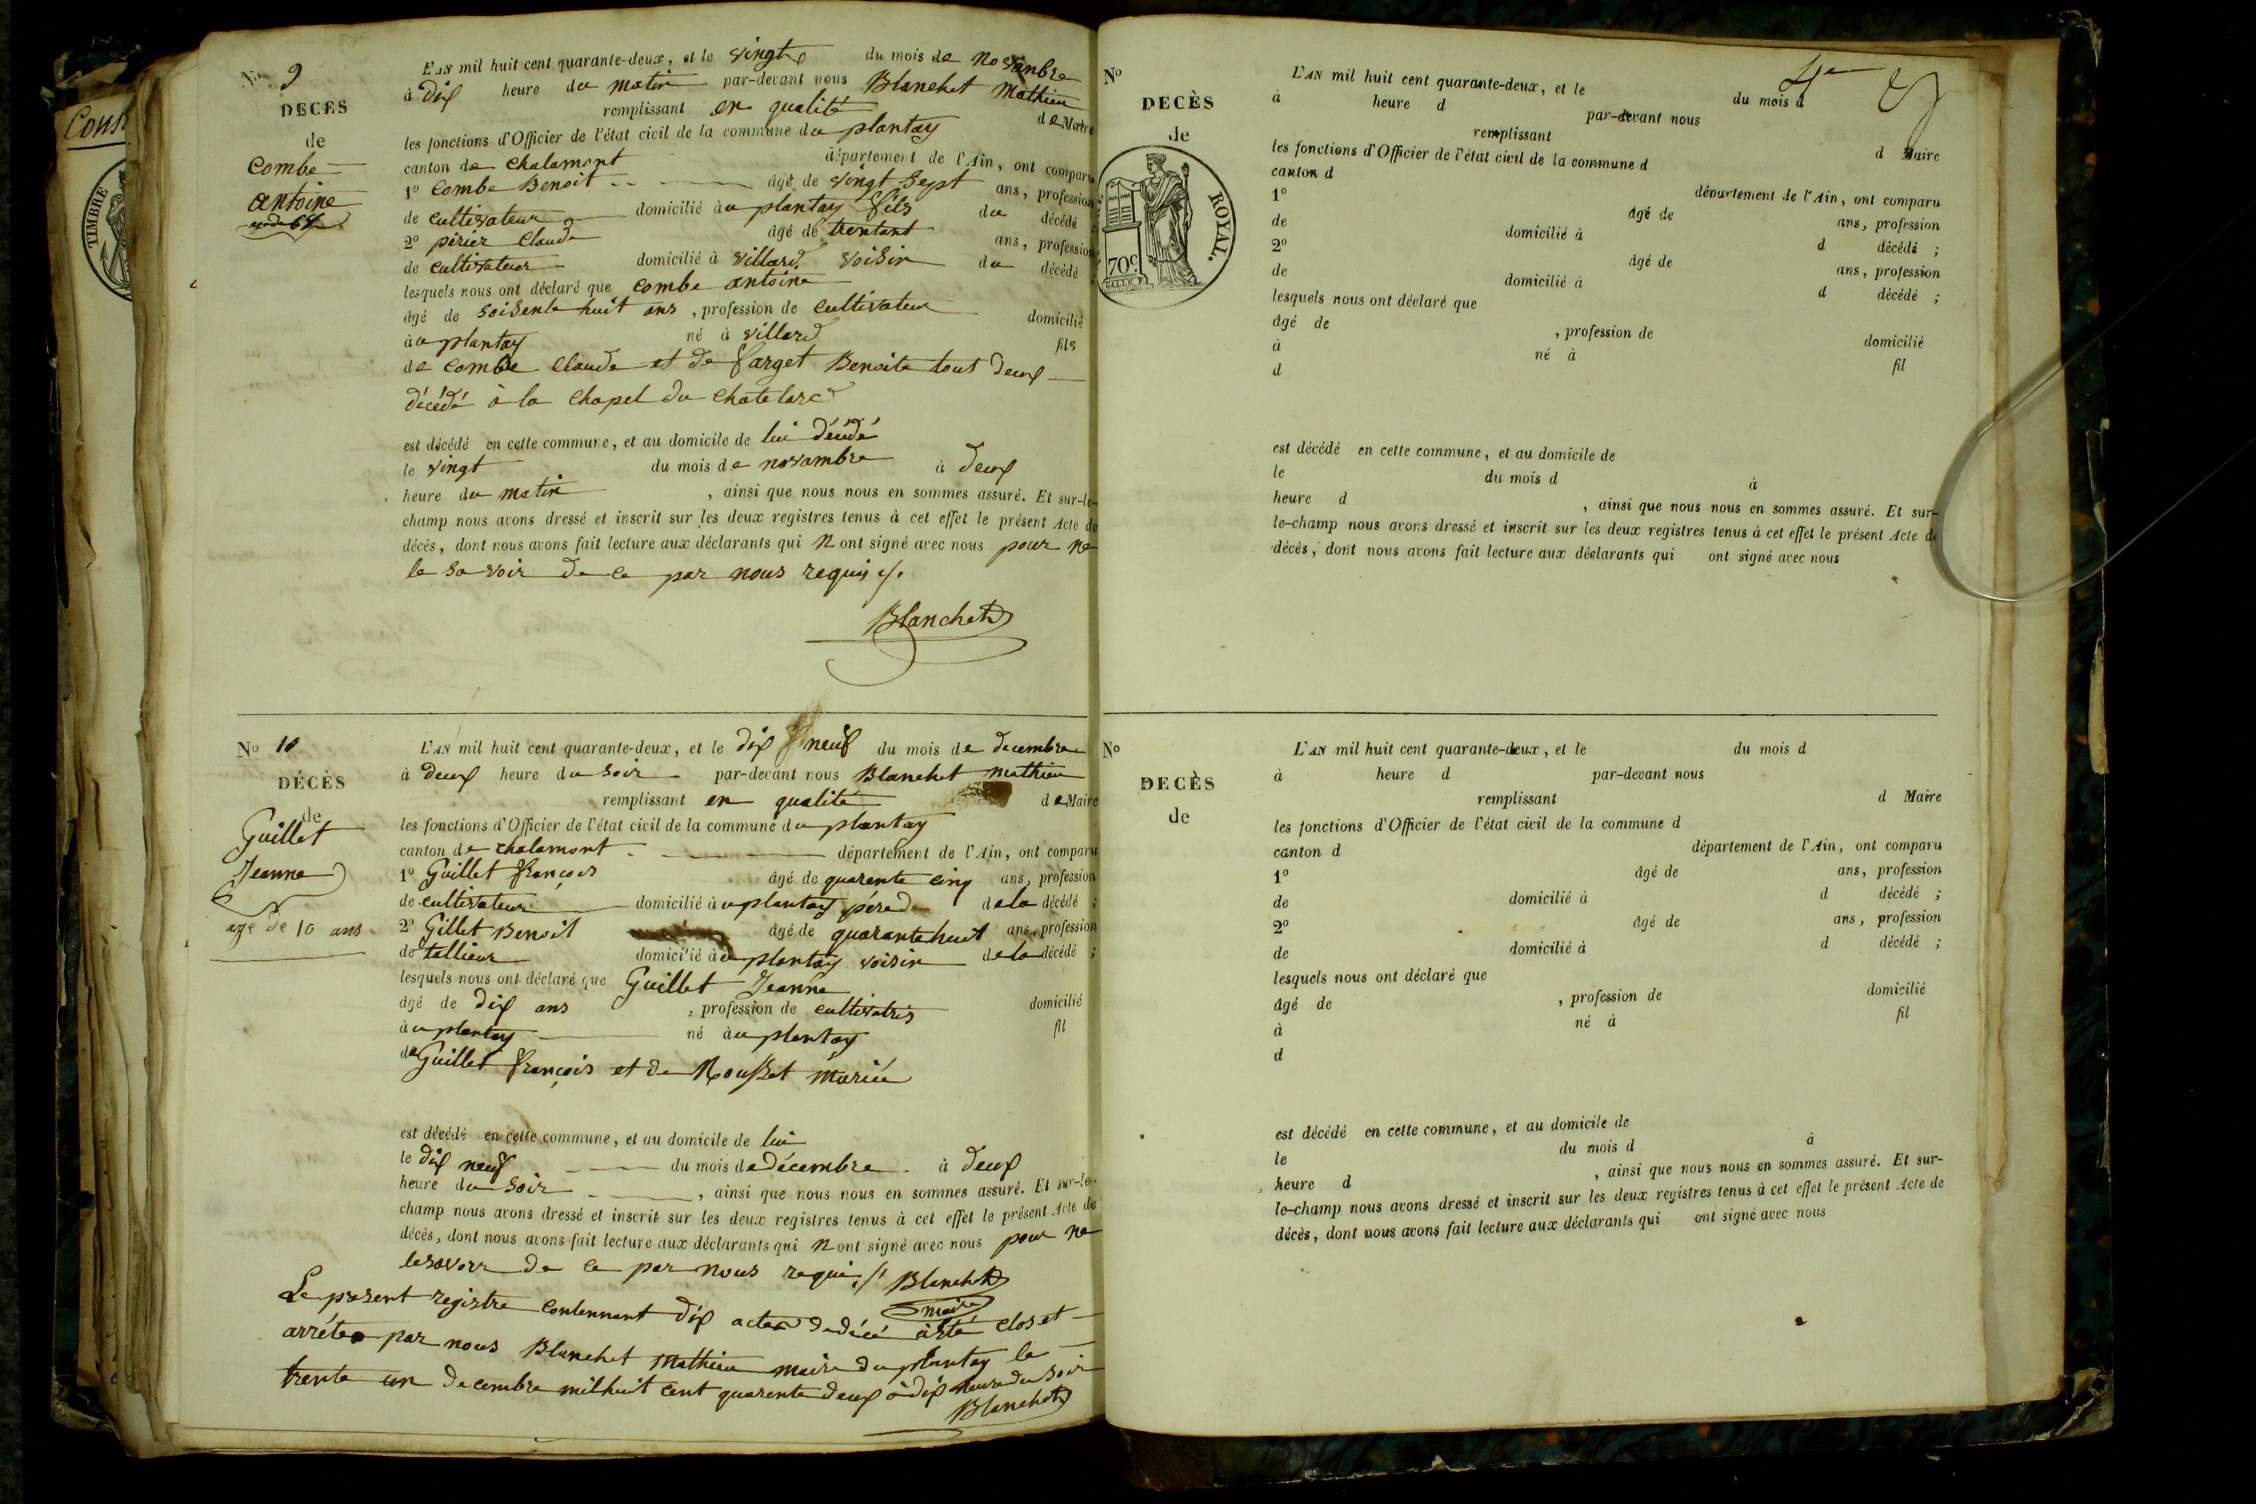 Cons
TIMBRE
No 9
DÉCÈS
de
Combe
antoine
L'AN mil huit cent quarante-deux, et le vingt du mois de novambre
à dix heure du matin par-devant nous Blanchet Mathieu
remplissant en qualité de Maire
les fonctions d'Officier de l'état civil de la commune du plantay
canton de chalamont département de l'Ain, ont comparu
1o Combe Benoit âgé de vingt sept ans, profession
de cultivateur domicilié au plantay fils du décédé ;
2o périer Claude âgé de trentant ans, profession
de cultivateur domicilié à villard voisin du décédé ;
lesquels nous ont déclaré que combe antoine
âgé de soisente huit ans, profession de cultivateur domicilié
au plantay né à villard fils
de combe Claude et de farget Benoite tout deux
décédé à la chapel du chatelard
est décédé en cette commune, et au domicile de lui décédé
le vingt du mois de novambre à deux
heure du matin, ainsi que nous nous en sommes assuré. Et sur-le-
champ nous avons dressé et inscrit sur les deux registres tenus à cet effet le présent Acte de
décès, dont nous avons fait lecture aux déclarants qui n ont signé avec nous pour ne
le savoir de ce par nous requis
Blanchet
No 10
DÉCÈS
de
Guillet
Jeanne
agé de 10 ans
L'AN mil huit cent quarante-deux, et le dix neuf du mois de decembre
à deux heure du soir par-devant nous Blanchet mathieu
remplissant en qualité de Maire
les fonctions d'Officier de l'état civil de la commune du plantay
canton de chalamont département de l'Ain, ont comparu
1o Guillet françois âgé de quarente cinq ans, profession
de cultivateur domicilié au plantay pére de la décédé ;
2o Gillet Benoit âgé de quarante huit ans, profession
de tallieur domicilié au plantay voisin de la décédé ;
lesquels nous ont déclaré que Guillet Jeanne
âgé de dix ans, profession de cultivatris domicilié
au plantay né au plantay fil
de Guillet françois et de Rousset Mariée
est décédé en cette commune, et au domicile de lui
le dix neuf du mois de Décembre à deux
heure du soir, ainsi que nous nous en sommes assuré. Et sur-le-
champ nous avons dressé et inscrit sur les deux registres tenus à cet effet le présent Acte de
décès, dont nous avons fait lecture aux déclarants qui n ont signé avec nous pour ne
le savoir de ce par nous requis Blanchet
maire
Le présent registre contennant dix actes de décé a été clos et
arrétée par nous Blanchet Mathieu maire du plantay le
trente un decembre mil huit cent quarente deux à dix heure du soir
Blanchet
4e
No
DECÈS
de
ROYAL.
70c
L'AN mil huit cent quarante-deux, et le du mois d
à heure d par-devant nous
remplissant d Maire
les fonctions d'Officier de l'état civil de la commune d
canton d département de l'Ain, ont comparu
1o âgé de ans, profession
de domicilié à d décédé ;
2o âgé de ans, profession
de domicilié à d décédé ;
lesquels nous ont déclaré que
âgé de , profession de domicilié
à né à fil
d
est décédé en cette commune, et au domicile de
le du mois d à
heure d , ainsi que nous nous en sommes assuré. Et sur-
le-champ nous avons dressé et inscrit sur les deux registres tenus à cet effet le présent Acte de
décès, dont nous avons fait lecture aux déclarants qui ont signé avec nous
No
DECÈS
de
L'AN mil huit cent quarante-deux, et le du mois d
à heure d par-devant nous
remplissant d Maire
les fonctions d'Officier de l'état civil de la commune d
canton d département de l'Ain, ont comparu
1o âgé de ans, profession
de domicilié à d décédé ;
2o âgé de ans, profession
de domicilié à d décédé ;
lesquels nous ont déclaré que
âgé de , profession de domicilié
à né à fil
d
est décédé en cette commune, et au domicile de
le du mois d à
heure d , ainsi que nous nous en sommes assuré. Et sur-
le-champ nous avons dressé et inscrit sur les deux registres tenus à cet effet le présent Acte de
décès, dont nous avons fait lecture aux déclarants qui ont signé avec nous